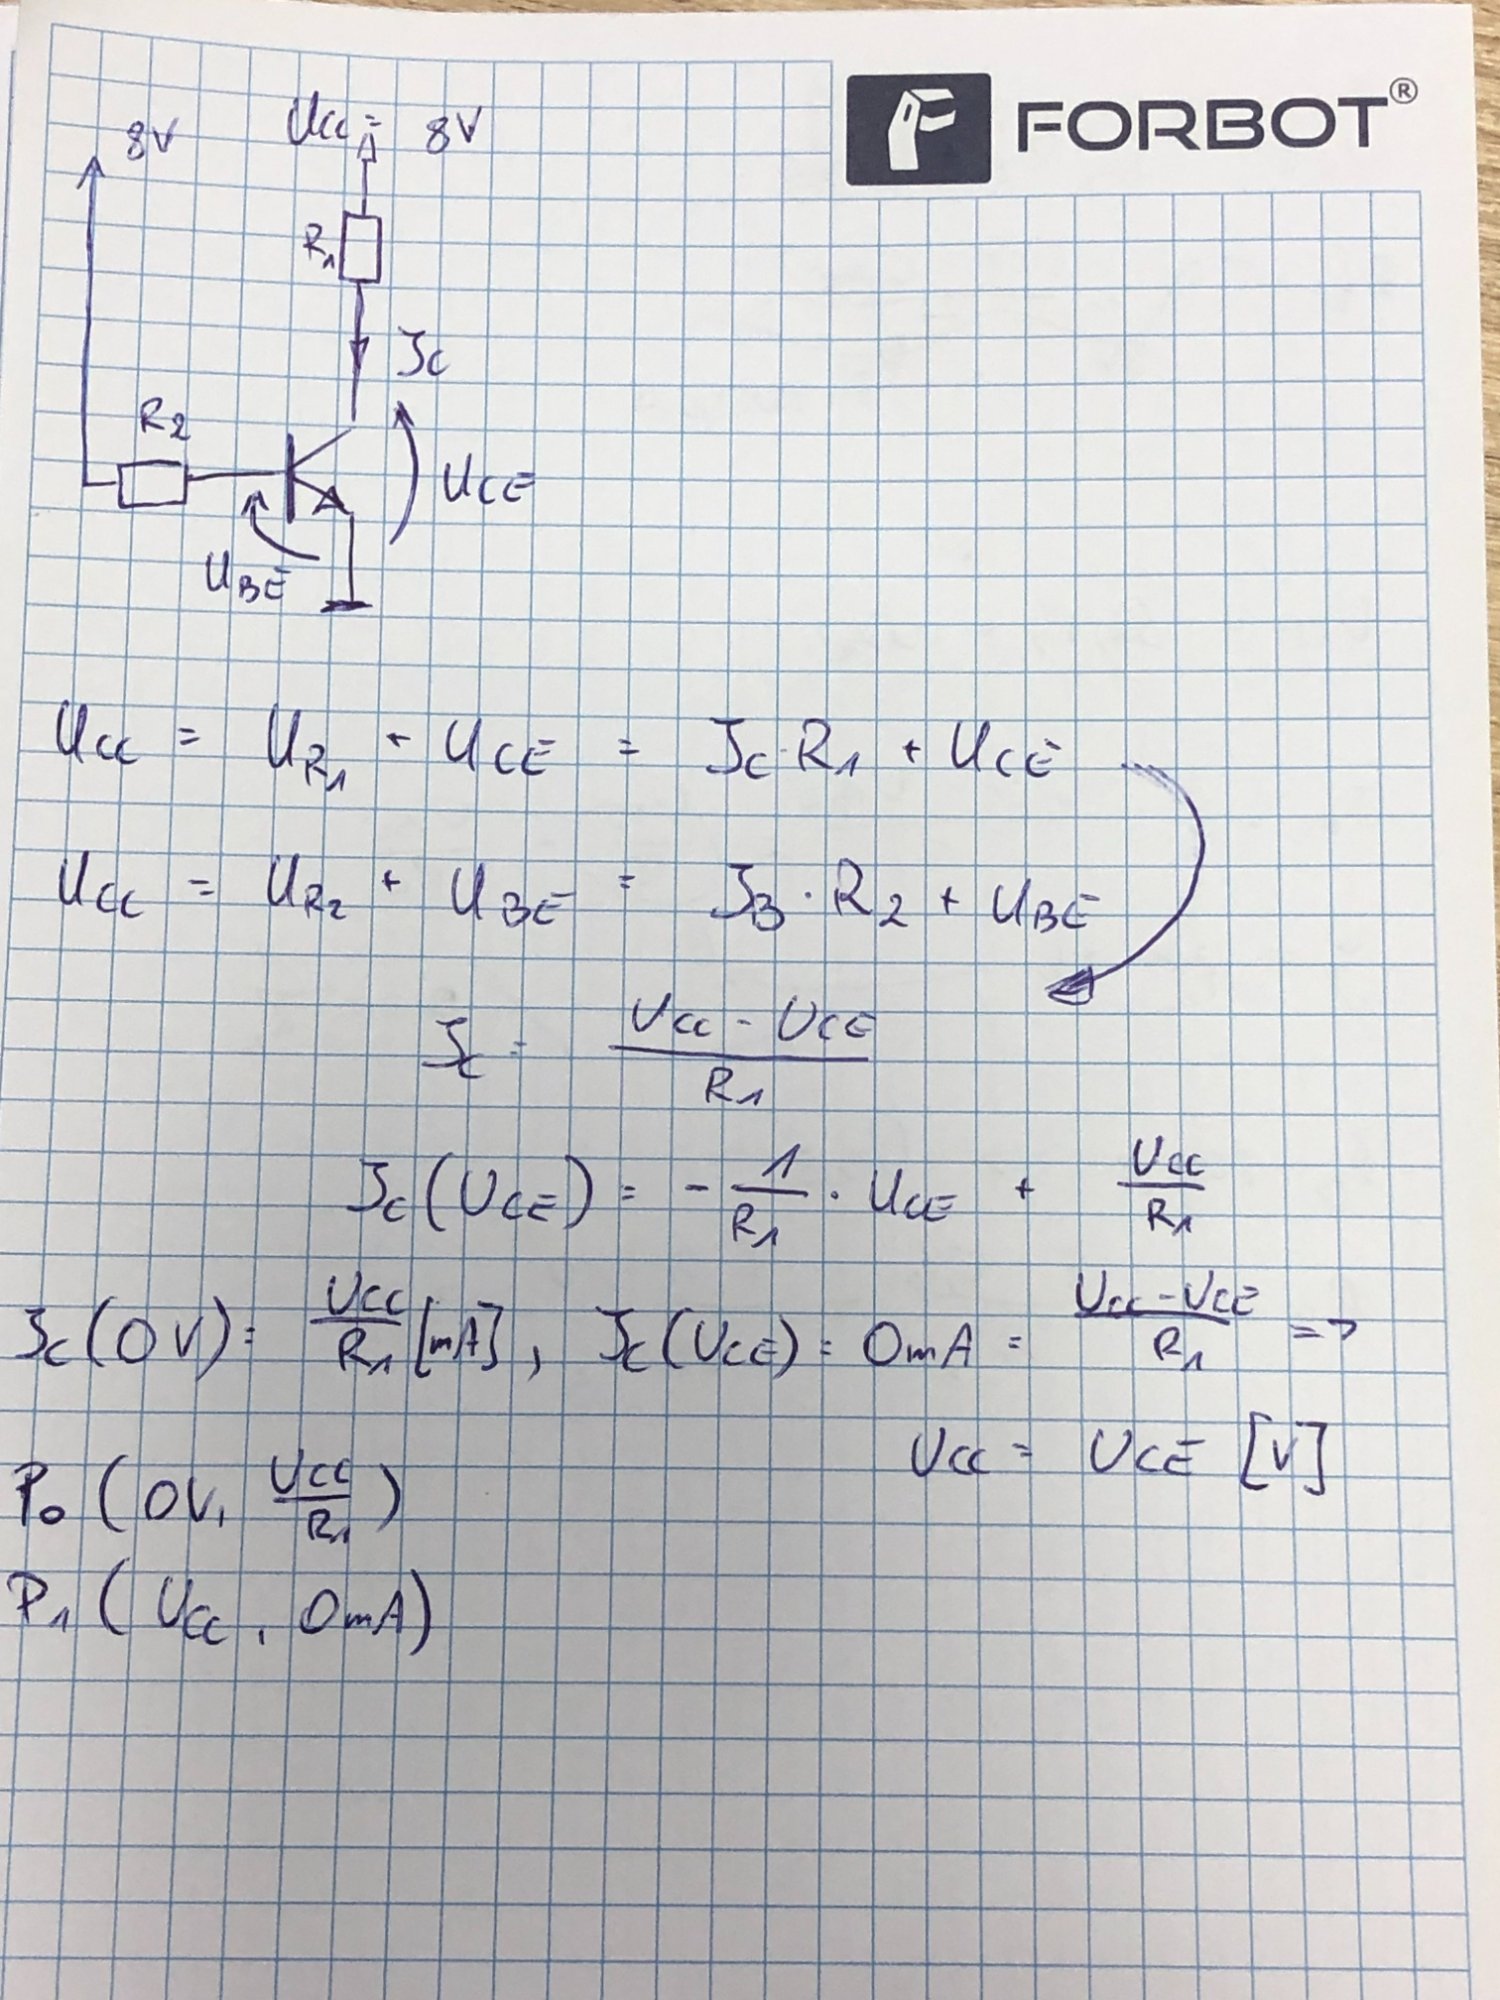 FORBOT®
8V
Ucc = 8V
R1
Jc
R2
UCE
UBE
Ucc = UR1 + UCE = Jc · R1 + UCE
Ucc = UR2 + UBE = JB · R2 + UBE
Jc = Ucc - UCE / R1
Jc (UCE) = - 1/R1 · UCE + Ucc/R1
Jc (0V) = Ucc/R1 [mA], Jc (UCE) = 0mA = Ucc - UCE / R1 =>
Ucc = UCE [V]
P0 (0V, Ucc/R1)
P1 (Ucc, 0mA)